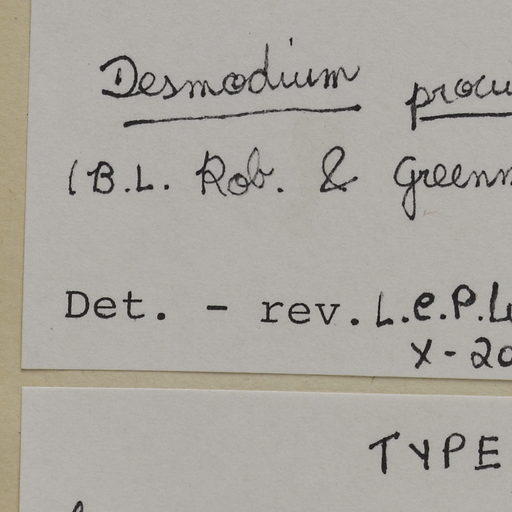 Desmodium procu
(B.L. Rob. & Greenm
Det. - rev. L.e.P.L
X-20
TYPE